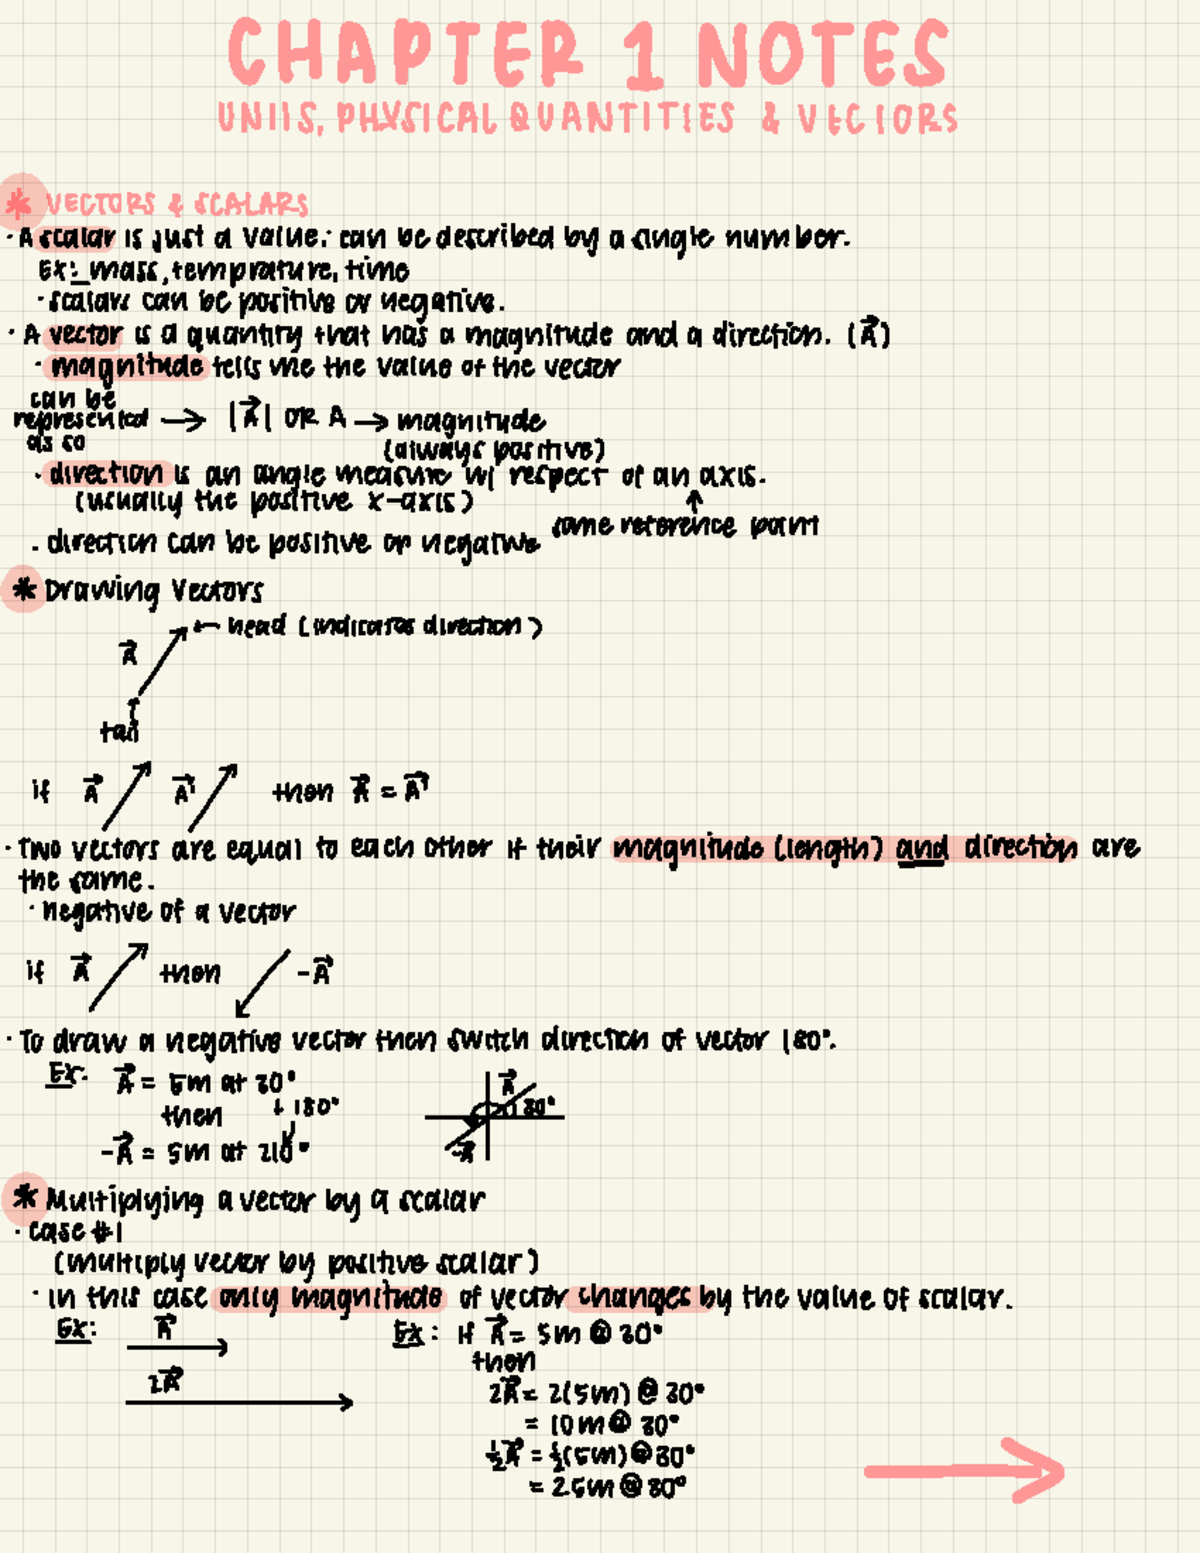 CHAPTER 1 NOTES
UNITS, PHYSICAL QUANTITIES & VECTORS
* VECTORS & SCALARS
· A scalar is just a value. can be described by a single number.
Ex: mass, temprature, time
· scalars can be positive or negative.
· A vector is a quantity that has a magnitude and a direction. (A⃗)
· magnitude tells me the value of the vector
can be represented as so → |A⃗| OR A → magnitude
(always positive)
· direction is an angle measure w/ respect of an axis.
(usually the positive x-axis)
↑
some reference point
· direction can be positive or negative
* Drawing Vectors
A⃗ ← head (indicates direction)
tail
if A⃗ A⃗' then A⃗ = A⃗'
· Two vectors are equal to each other if their magnitude (length) and direction are
the same.
· negative of a vector
if A⃗ then -A⃗
· To draw a negative vector then switch direction of vector 180°.
Ex: A⃗ = 5m at 30°
then + 180°
-A⃗ = 5m at 210°
A⃗
30°
-A⃗
* Multiplying a vector by a scalar
· case #1
(multiply vector by positive scalar)
· in this case only magnitude of vector changes by the value of scalar.
Ex: A⃗
2A⃗
Ex: If A⃗ = 5m @ 30°
then
2A⃗ = 2(5m) @ 30°
= 10m @ 30°
½A⃗ = ½(5m) @ 30°
= 2.5m @ 30°